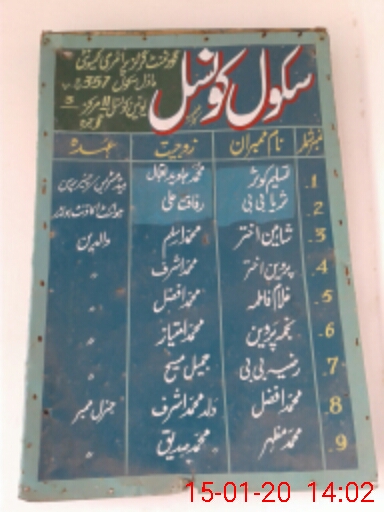 سکول کونسل
گورنمنٹ گرلز پرائمری کمیونٹی
ماڈل سکول 357
نمبر شمار نام ممبران زوجیت عہدہ
1. تسلیم کوثر محمد جاوید اقبال
2. ثریا بی بی رفاقت علی
3. شاہین اختر محمد اسلم والدین
4. پروین اختر محمد اشرف "
5. غلام فاطمہ محمد افضل "
6. نجمہ پروین محمد امتیاز "
7. رضیہ بی بی جمیل مسیح "
8. محمد افضل ولد محمد اشرف جنرل ممبر
9. محمد مظہر محمد صدیق "
15-01-20 14:02